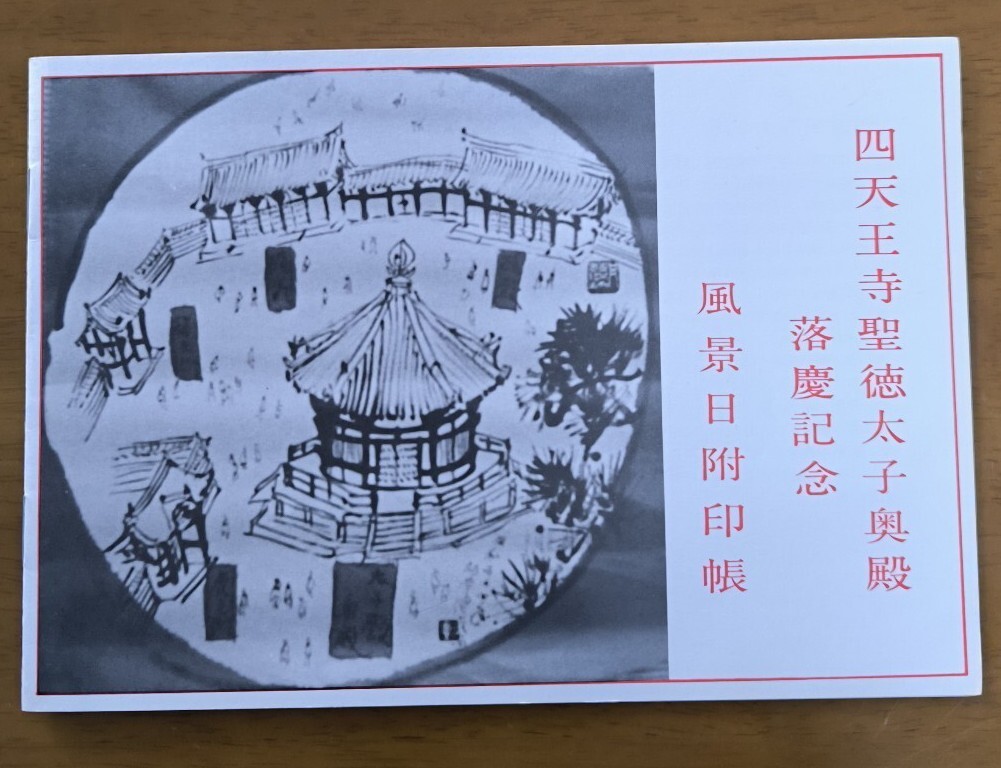 四天王寺聖徳太子奥殿
落慶記念
風景日附印帳